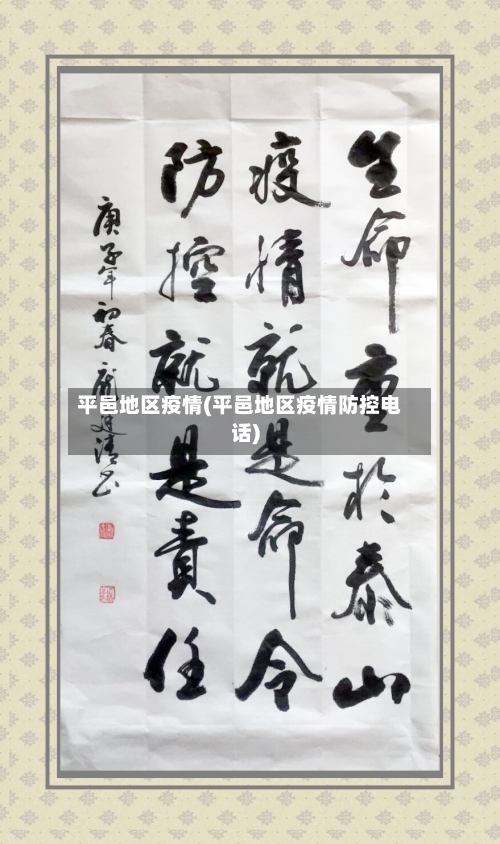 生命重於泰山
疫情就是命令
防控就是責任
庚子年初春
平邑地区疫情(平邑地区疫情防控电
话)